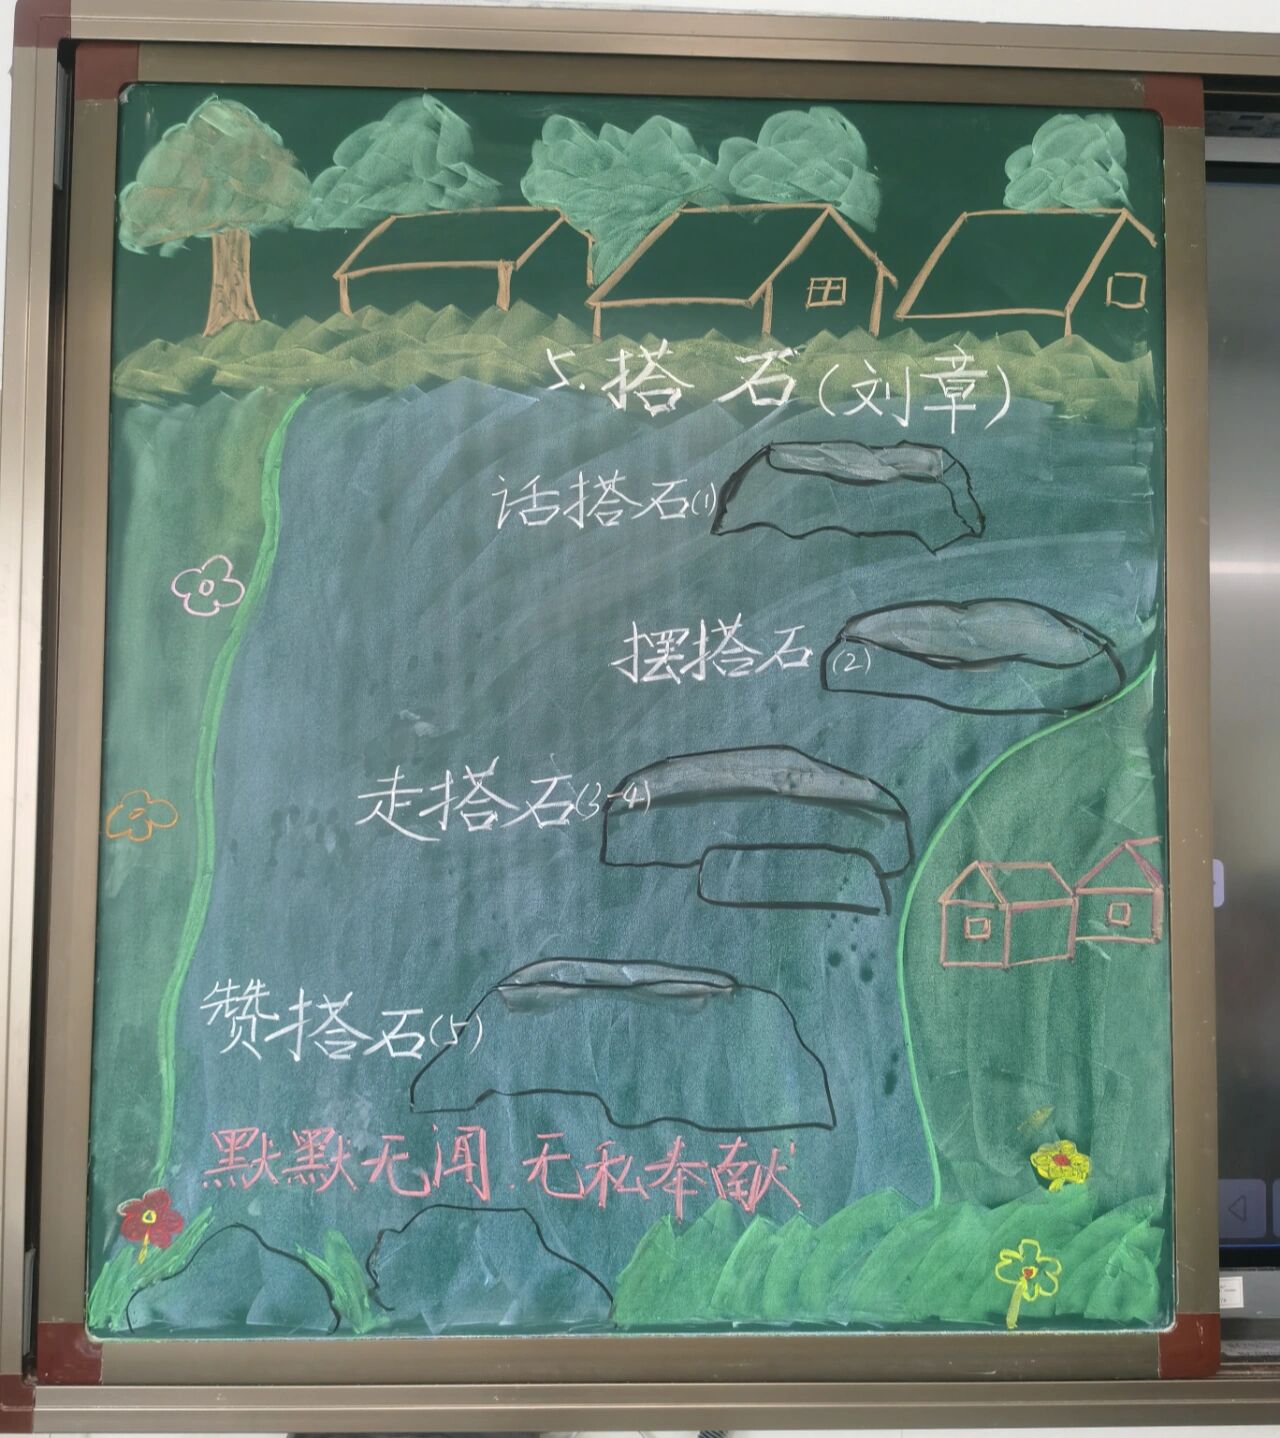 5.搭石(刘章)
话搭石(1)
摆搭石(2)
走搭石(3-4)
赞搭石(5)
默默无闻.无私奉献